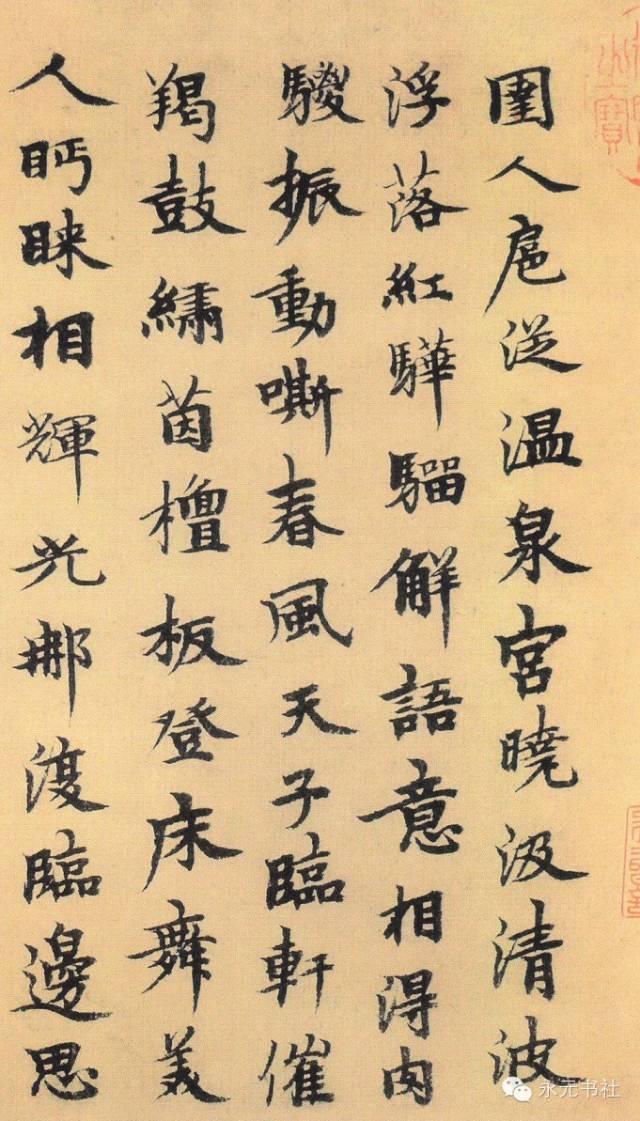 圉人扈從温泉宮曉汲清波
浮落紅驊騮解語意相得肉
騣振動嘶春風天子臨軒催
羯鼓繡茵檀板登床舞美
人眄睞相輝光那復臨邊思
永元书社